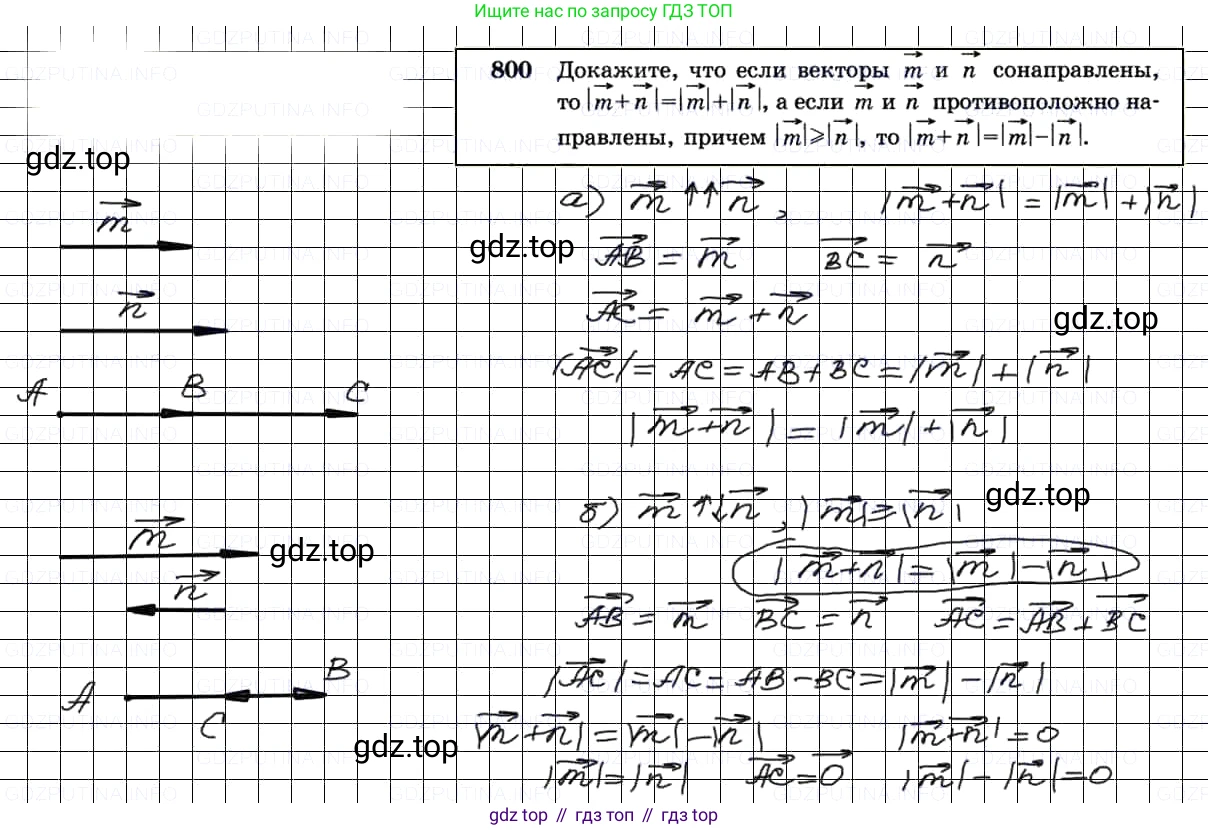 Ищите нас по запросу ГДЗ ТОП
800 Докажите, что если векторы m⃗ и n⃗ сонаправлены,
то |m⃗+n⃗|=|m⃗|+|n⃗|, а если m⃗ и n⃗ противоположно на-
правлены, причем |m⃗|⩾|n⃗|, то |m⃗+n⃗|=|m⃗|−|n⃗|.
gdz.top
m⃗
n⃗
A B C
а) m⃗ ↑↑ n⃗, |m⃗+n⃗| = |m⃗|+|n⃗|
gdz.top
AB⃗ = m⃗ BC⃗ = n⃗
AC⃗ = m⃗ + n⃗
gdz.top
|AC⃗| = AC = AB+BC = |m⃗|+|n⃗|
|m⃗+n⃗| = |m⃗|+|n⃗|
m⃗
gdz.top
n⃗
A C B
б) m⃗ ↑↓ n⃗, |m⃗|⩾|n⃗|
gdz.top
|m⃗+n⃗| = |m⃗|−|n⃗|
AB⃗ = m⃗ BC⃗ = n⃗ AC⃗ = AB⃗ + BC⃗
|AC⃗| = AC = AB−BC = |m⃗|−|n⃗|
|m⃗+n⃗| = |m⃗|−|n⃗| |m⃗+n⃗| = 0
gdz.top
|m⃗| = |n⃗| AC⃗ = 0⃗ |m⃗|−|n⃗| = 0
gdz top // гдз топ // gdz top